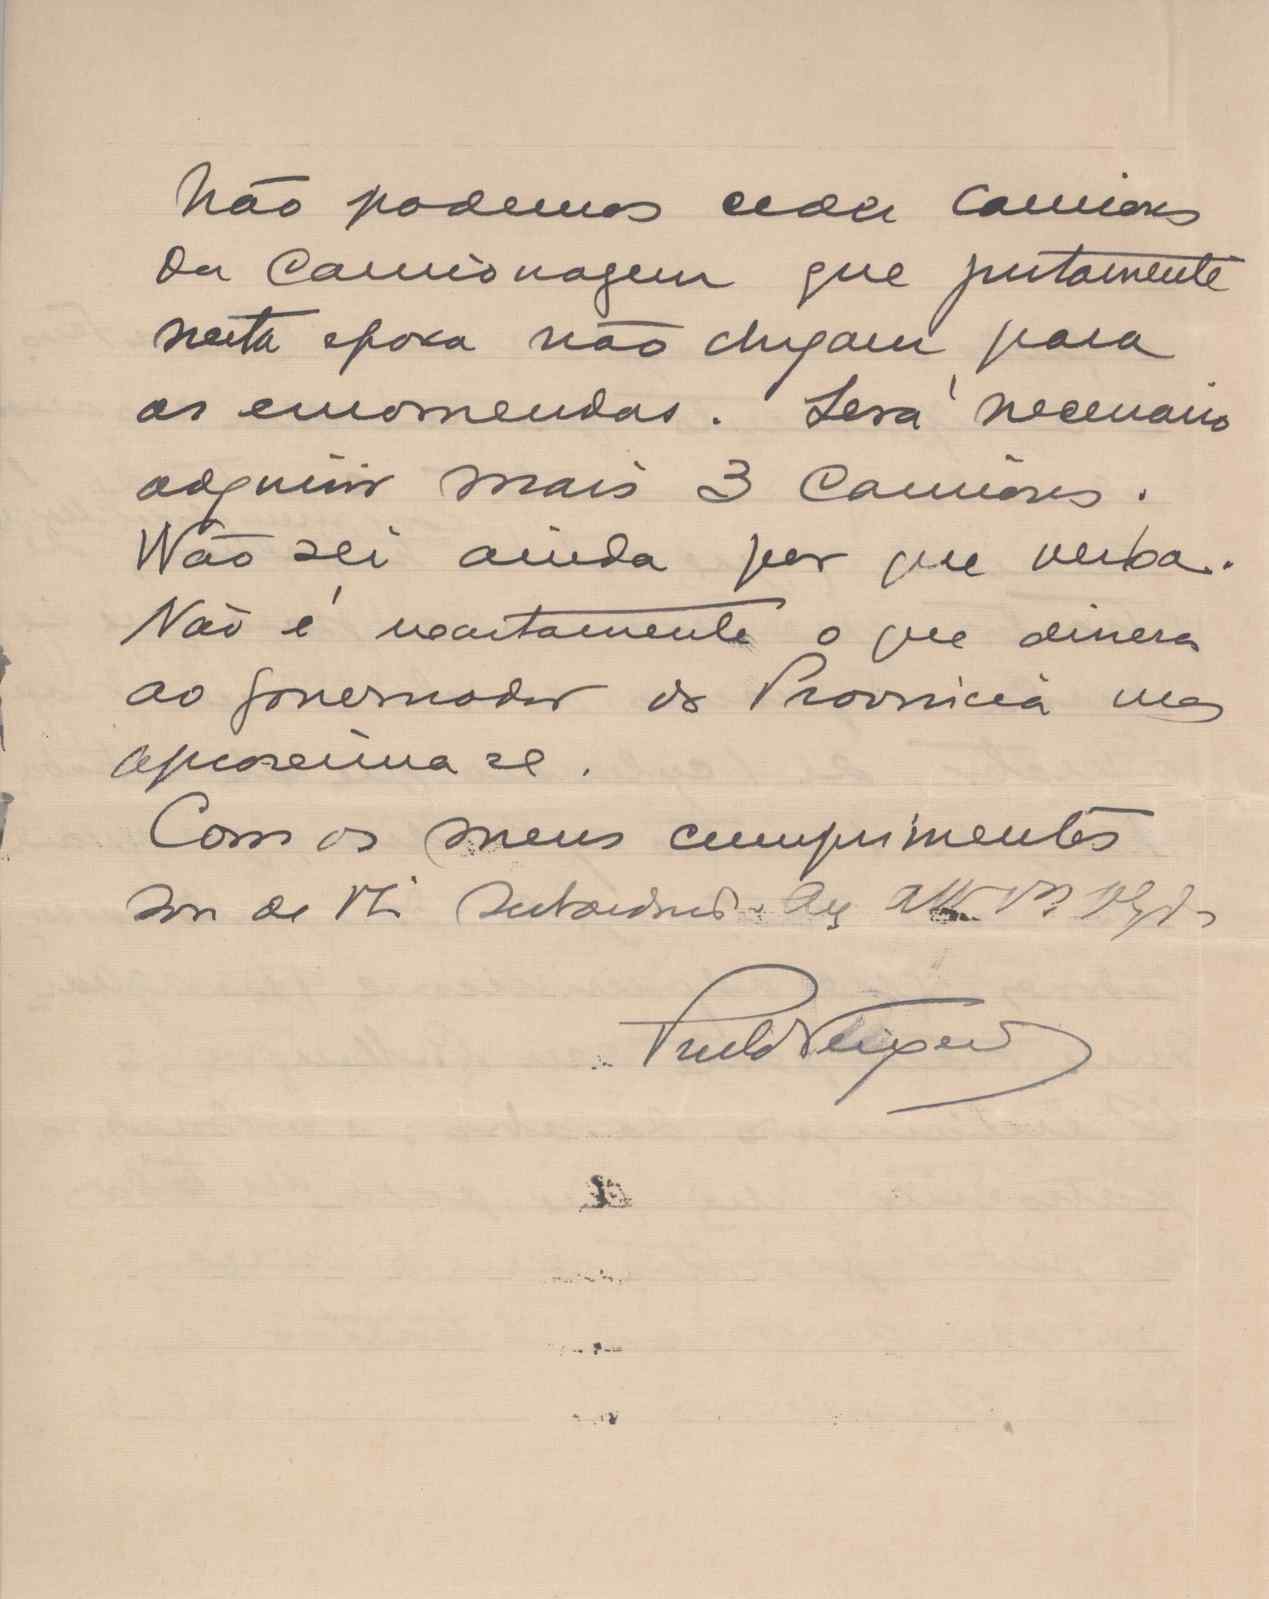 Não podemos ceder camiões
da Camionagem que justamente
nesta epoca não chegam para
as encomendas. Será necessario
adquirir mais 3 Camiões.
Não sei ainda por que verba.
Não é exactamente o que dissera
ao Governador da Provincia mas
aproxima se.
Com os meus cumprimentos
sou de